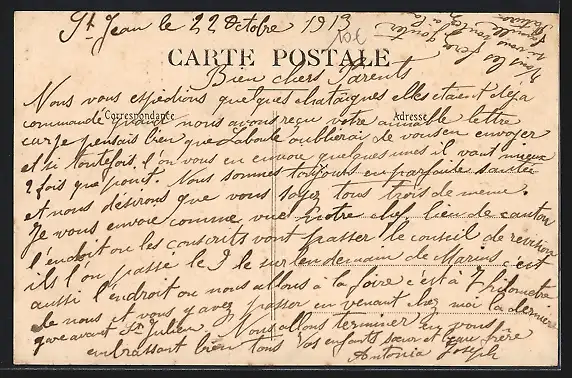 St Jean le 22 Octobre 1913
10€
CARTE POSTALE
Bien chers Parents
Correspondance
Adresse
Nous vous expédions quelques chataignes elles étaient deja
commandé quand nous avons reçu votre aimable lettre
car je pensais bien que Laboule oublierai de vous en envoyer
et si toutefois l'on vous en envoie quelques unes il vaut mieux
2 fois que point. Nous sommes toujours en parfaite santer
et nous désirons que vous soyez tous trois de meme.
Je vous envoie comme vue notre chef lieu de canton
l'endroit ou les conscrits vont passer le conseil de revision
ils l'on passé le 9 le surlendemain de c'est
aussi l'endroit ou nous allons à la foire c'est à 7 kilometre
de nous et vous y avez passer en venant chez moi la derniere
gare avant St Julien. Nous allons terminer en vous
embrassant bien tous Vos enfants sœur et beau frère
Antonia Joseph